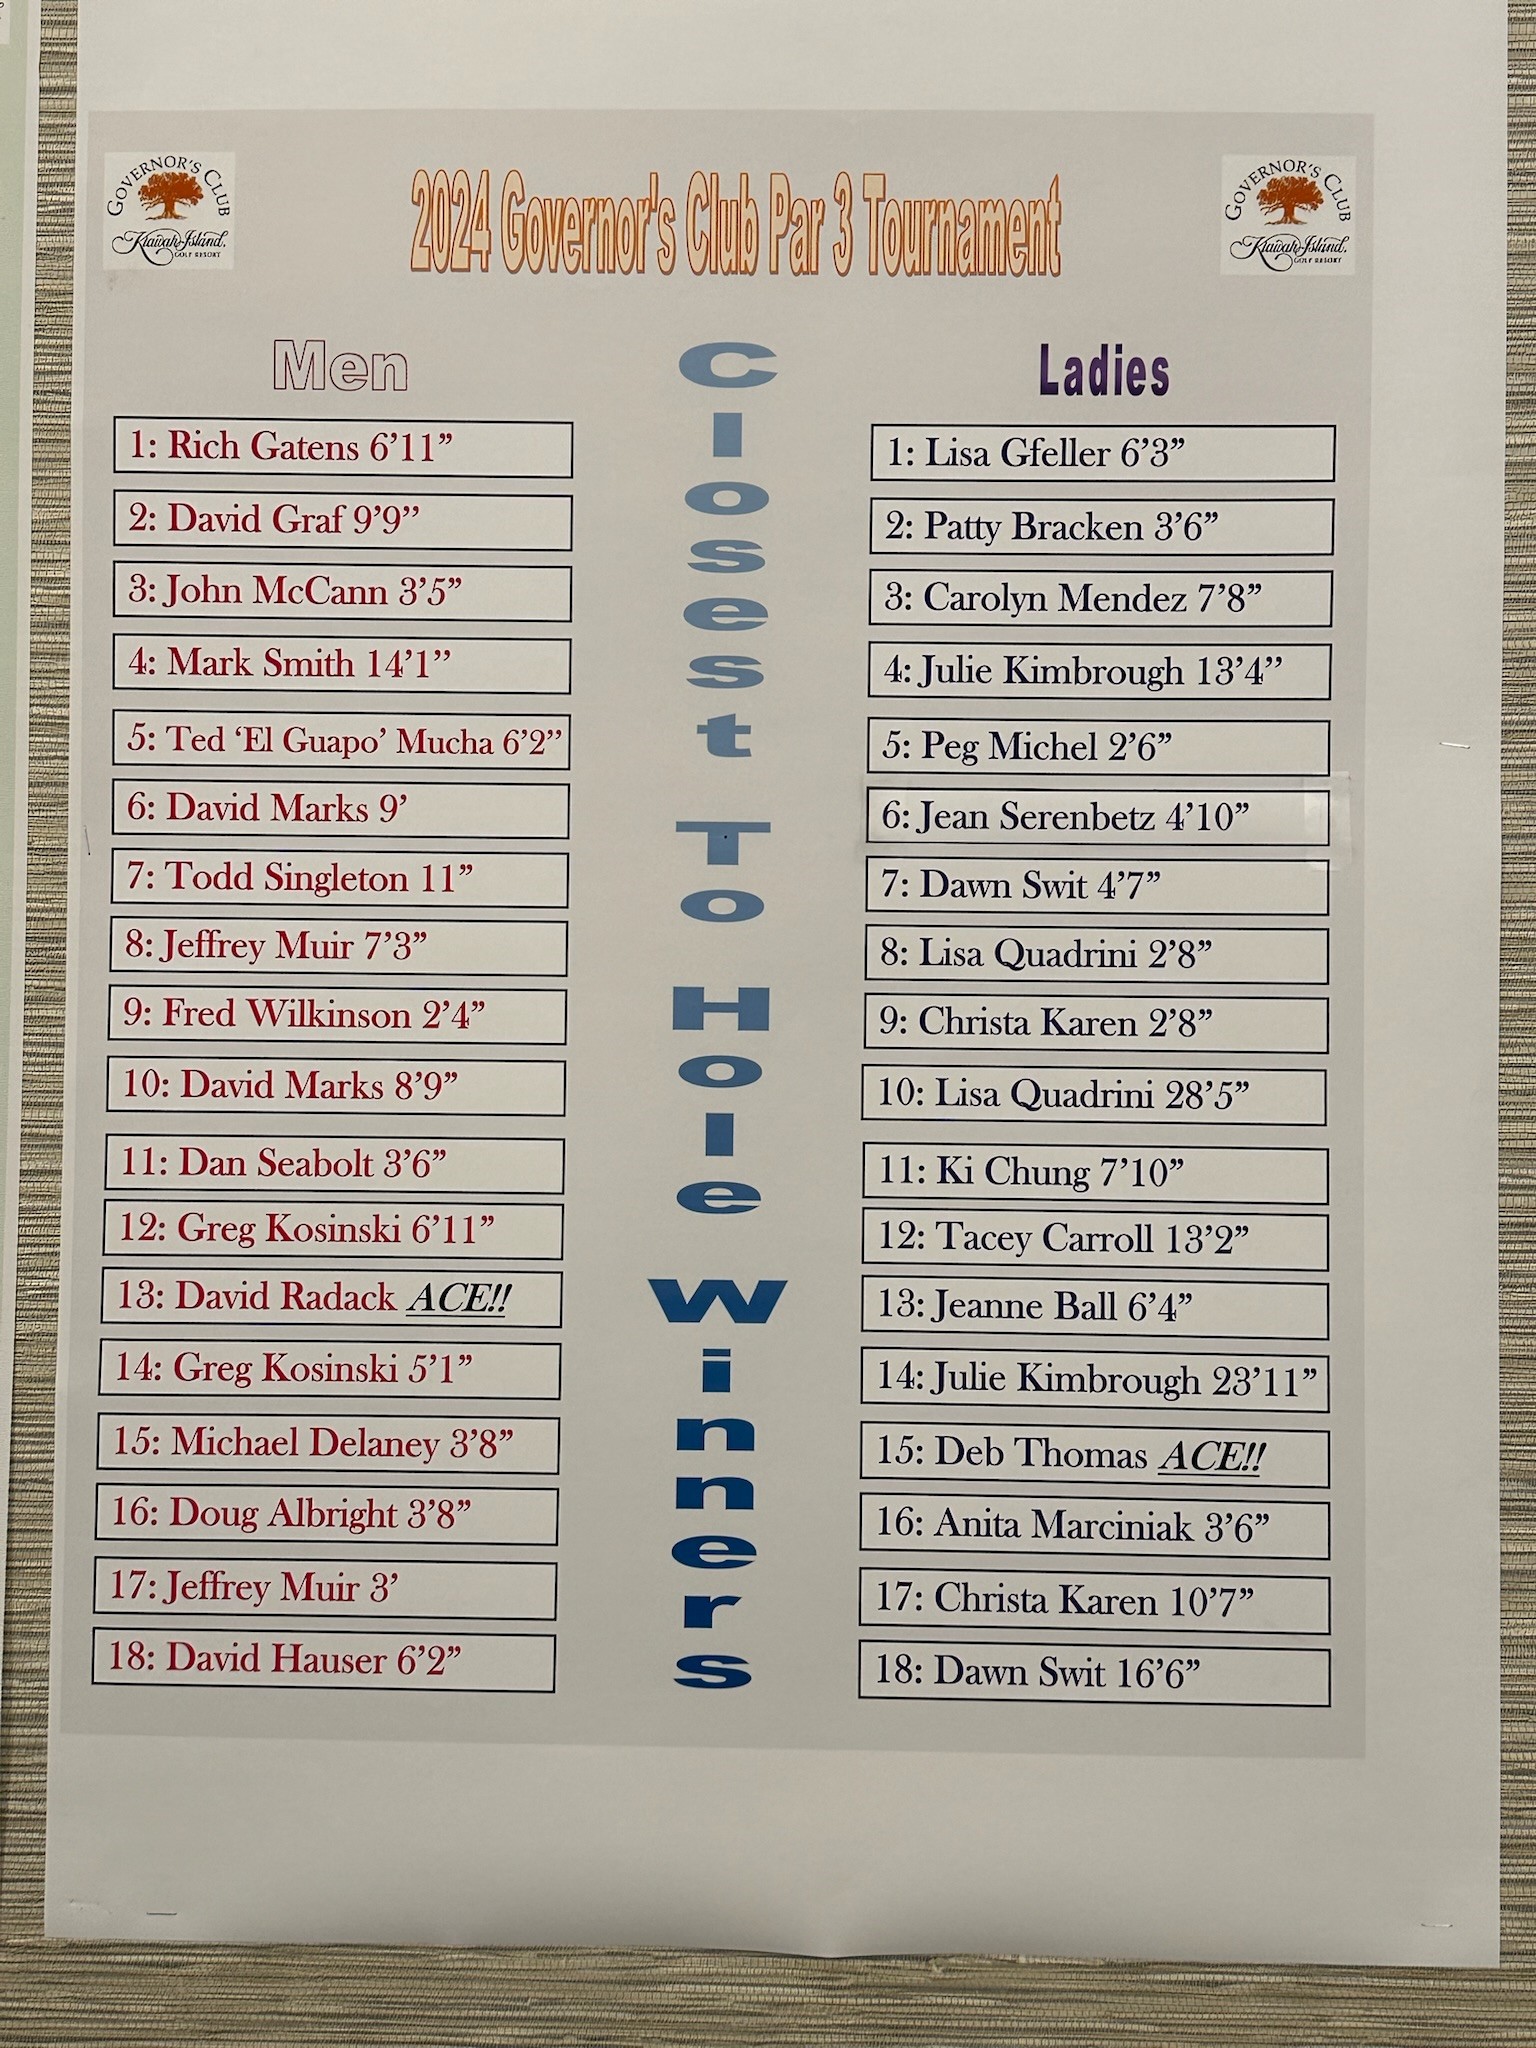 GOVERNOR'S CLUB
Kiawah Island.
GOLF RESORT
2024 Governor's Club Par 3 Tournament
GOVERNOR'S CLUB
Kiawah Island.
GOLF RESORT
Men
1: Rich Gatens 6’11”
2: David Graf 9’9’’
3: John McCann 3’5”
4: Mark Smith 14’1’’
5: Ted ‘El Guapo’ Mucha 6’2’’
6: David Marks 9’
7: Todd Singleton 11”
8: Jeffrey Muir 7’3”
9: Fred Wilkinson 2’4”
10: David Marks 8’9”
11: Dan Seabolt 3’6”
12: Greg Kosinski 6’11”
13: David Radack ACE!!
14: Greg Kosinski 5’1”
15: Michael Delaney 3’8”
16: Doug Albright 3’8”
17: Jeffrey Muir 3’
18: David Hauser 6’2”
Closest To Hole Winners
Ladies
1: Lisa Gfeller 6’3”
2: Patty Bracken 3’6”
3: Carolyn Mendez 7’8”
4: Julie Kimbrough 13’4’’
5: Peg Michel 2’6”
6: Jean Serenbetz 4’10”
7: Dawn Swit 4’7”
8: Lisa Quadrini 2’8”
9: Christa Karen 2’8”
10: Lisa Quadrini 28’5”
11: Ki Chung 7’10”
12: Tacey Carroll 13’2”
13: Jeanne Ball 6’4”
14: Julie Kimbrough 23’11”
15: Deb Thomas ACE!!
16: Anita Marciniak 3’6”
17: Christa Karen 10’7”
18: Dawn Swit 16’6”